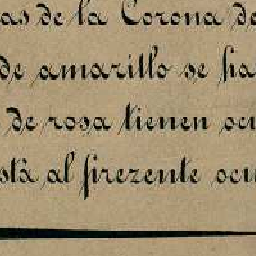 as de la Corona de
de amarillo se ha
de rosa tienen ocu
stá al prezente ocu